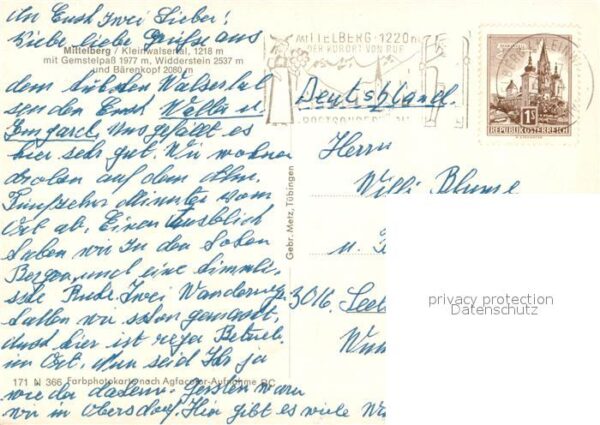 An Euch Zwei Lieber!
Liebe liebe Grüße aus
Mittelberg / Kleinwalsertal, 1218 m
mit Gemstelpaß 1977 m, Widderstein 2537 m
und Bärenkopf 2080 m
dem
Walsertal
senden Euch Walli u.
Irmgard. Uns gefällt es
hier sehr gut. Wir wohnen
droben auf dem
Fünfzehn Minuten vom
Ort ab. Einen Ausblick
haben wir In den hohen
Bergen und eine himmli-
sche Ruhe. Zwei Wanderwege
haben wir schon gemacht,
hier ist reger Betrieb
im Ort. Nun seid Ihr ja
wie der daheim. Gestern waren
wir in Obersdorf. Hier gibt es viele
171 N 366 Farbphotokarte nach Agfacolor-Aufnahme
Gebr. Metz, Tübingen
MITTELBERG · 1220 m
DER KURORT VON RUF
Deutschland.
1S
REPUBLIK ÖSTERREICH
Herrn
Willi Blume
u.
3016 Seel
privacy protection
Datenschutz